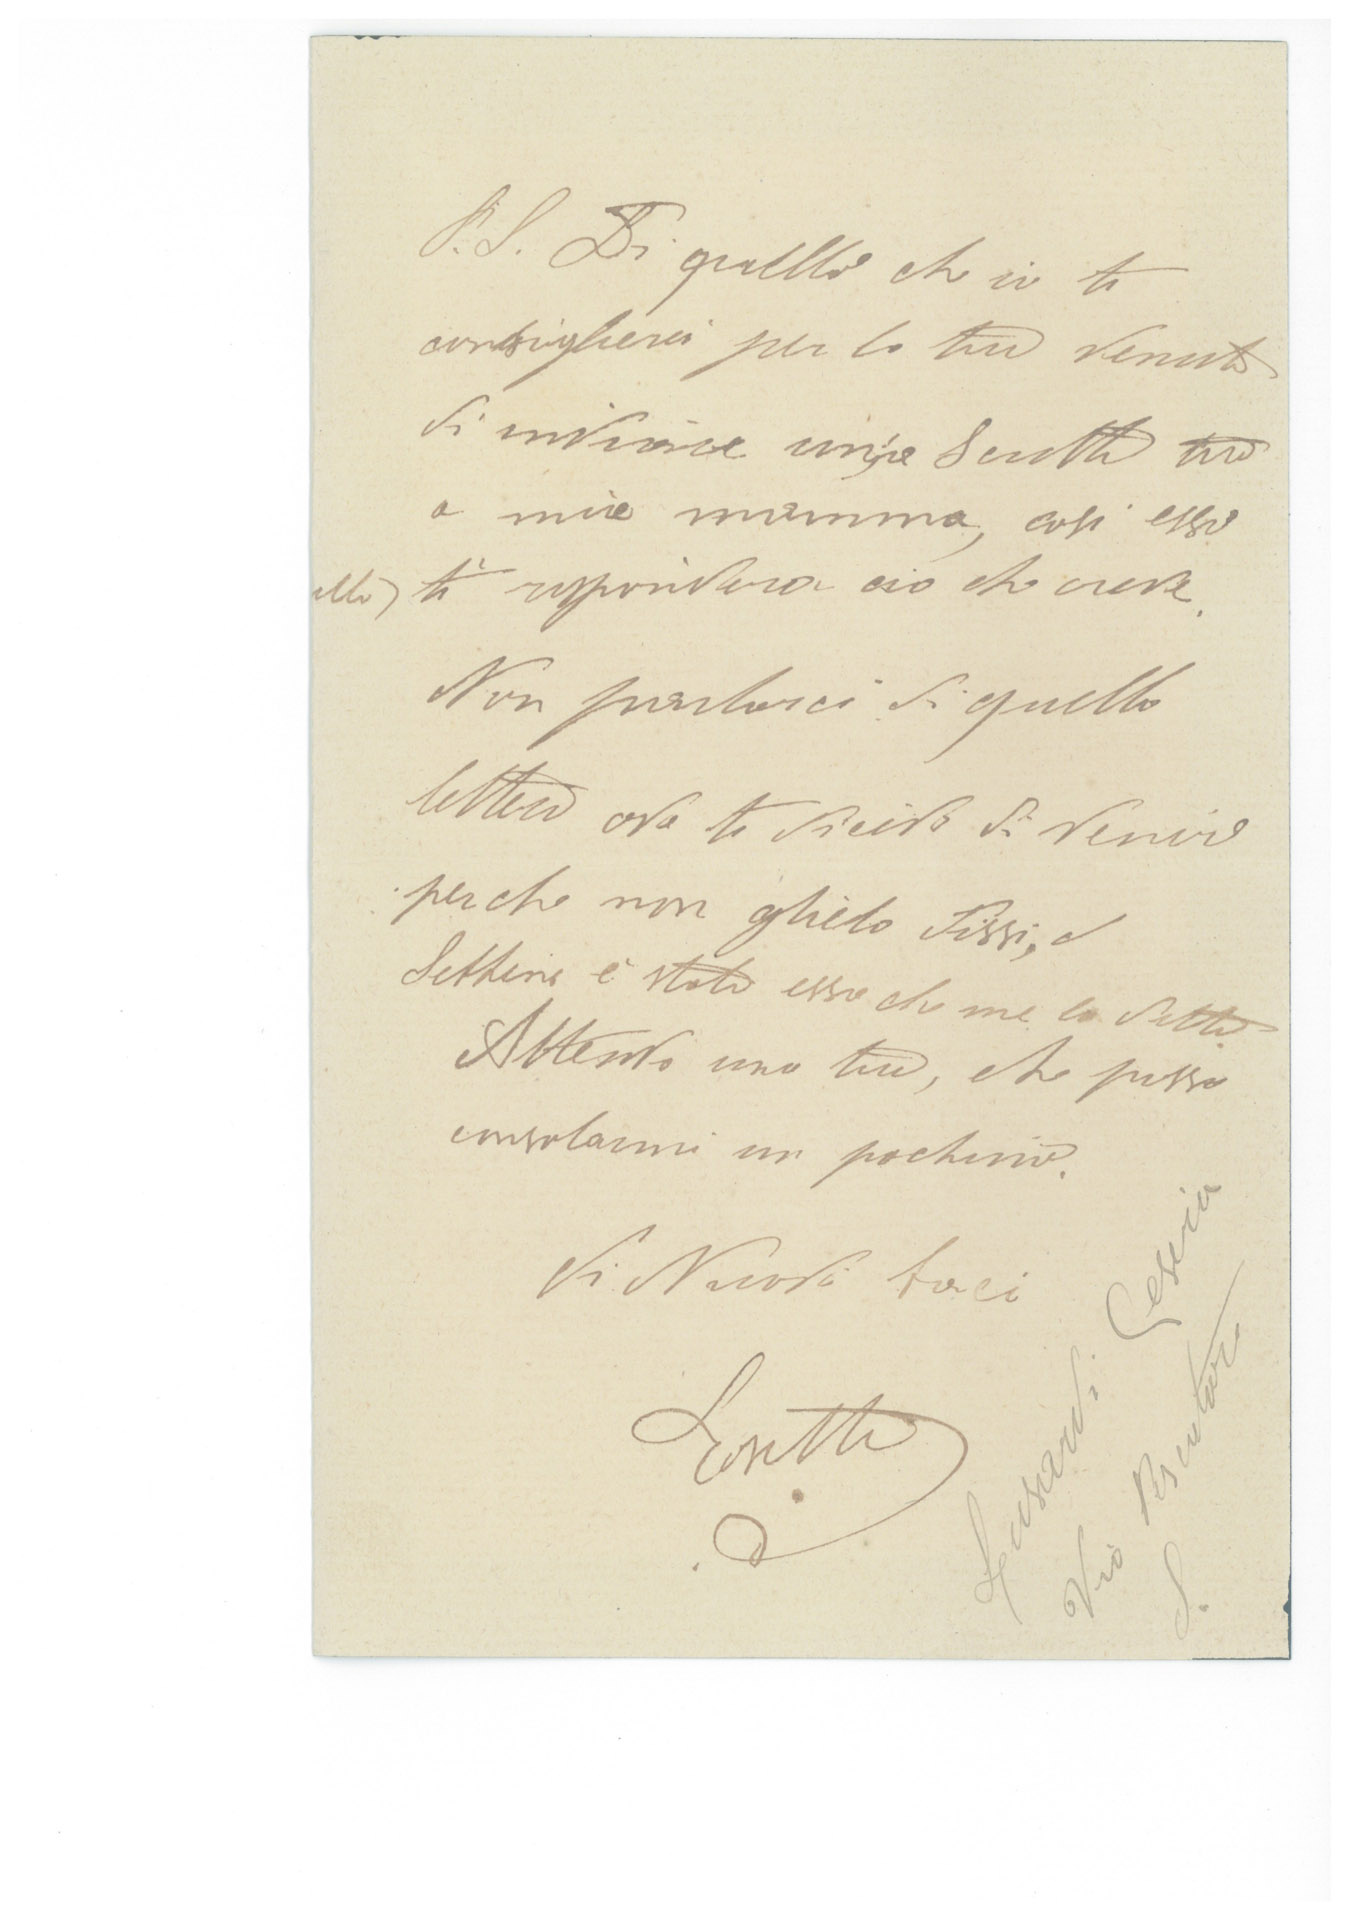 P.S. Di quello che io ti
consiglierei per la tua venuta
di indirizzare scritta tua
a mia mamma, così essa
ti risponderà ciò che crede.
Non parlarci di quella
lettera ove ti dicevo di venire
perche non glielo dissi, e
è stata essa che me la detto.
Attendo una tua, che possa
consolarmi un pochino.
di Nuovo baci
Lusardi Cesira
Via Pescatore
S.